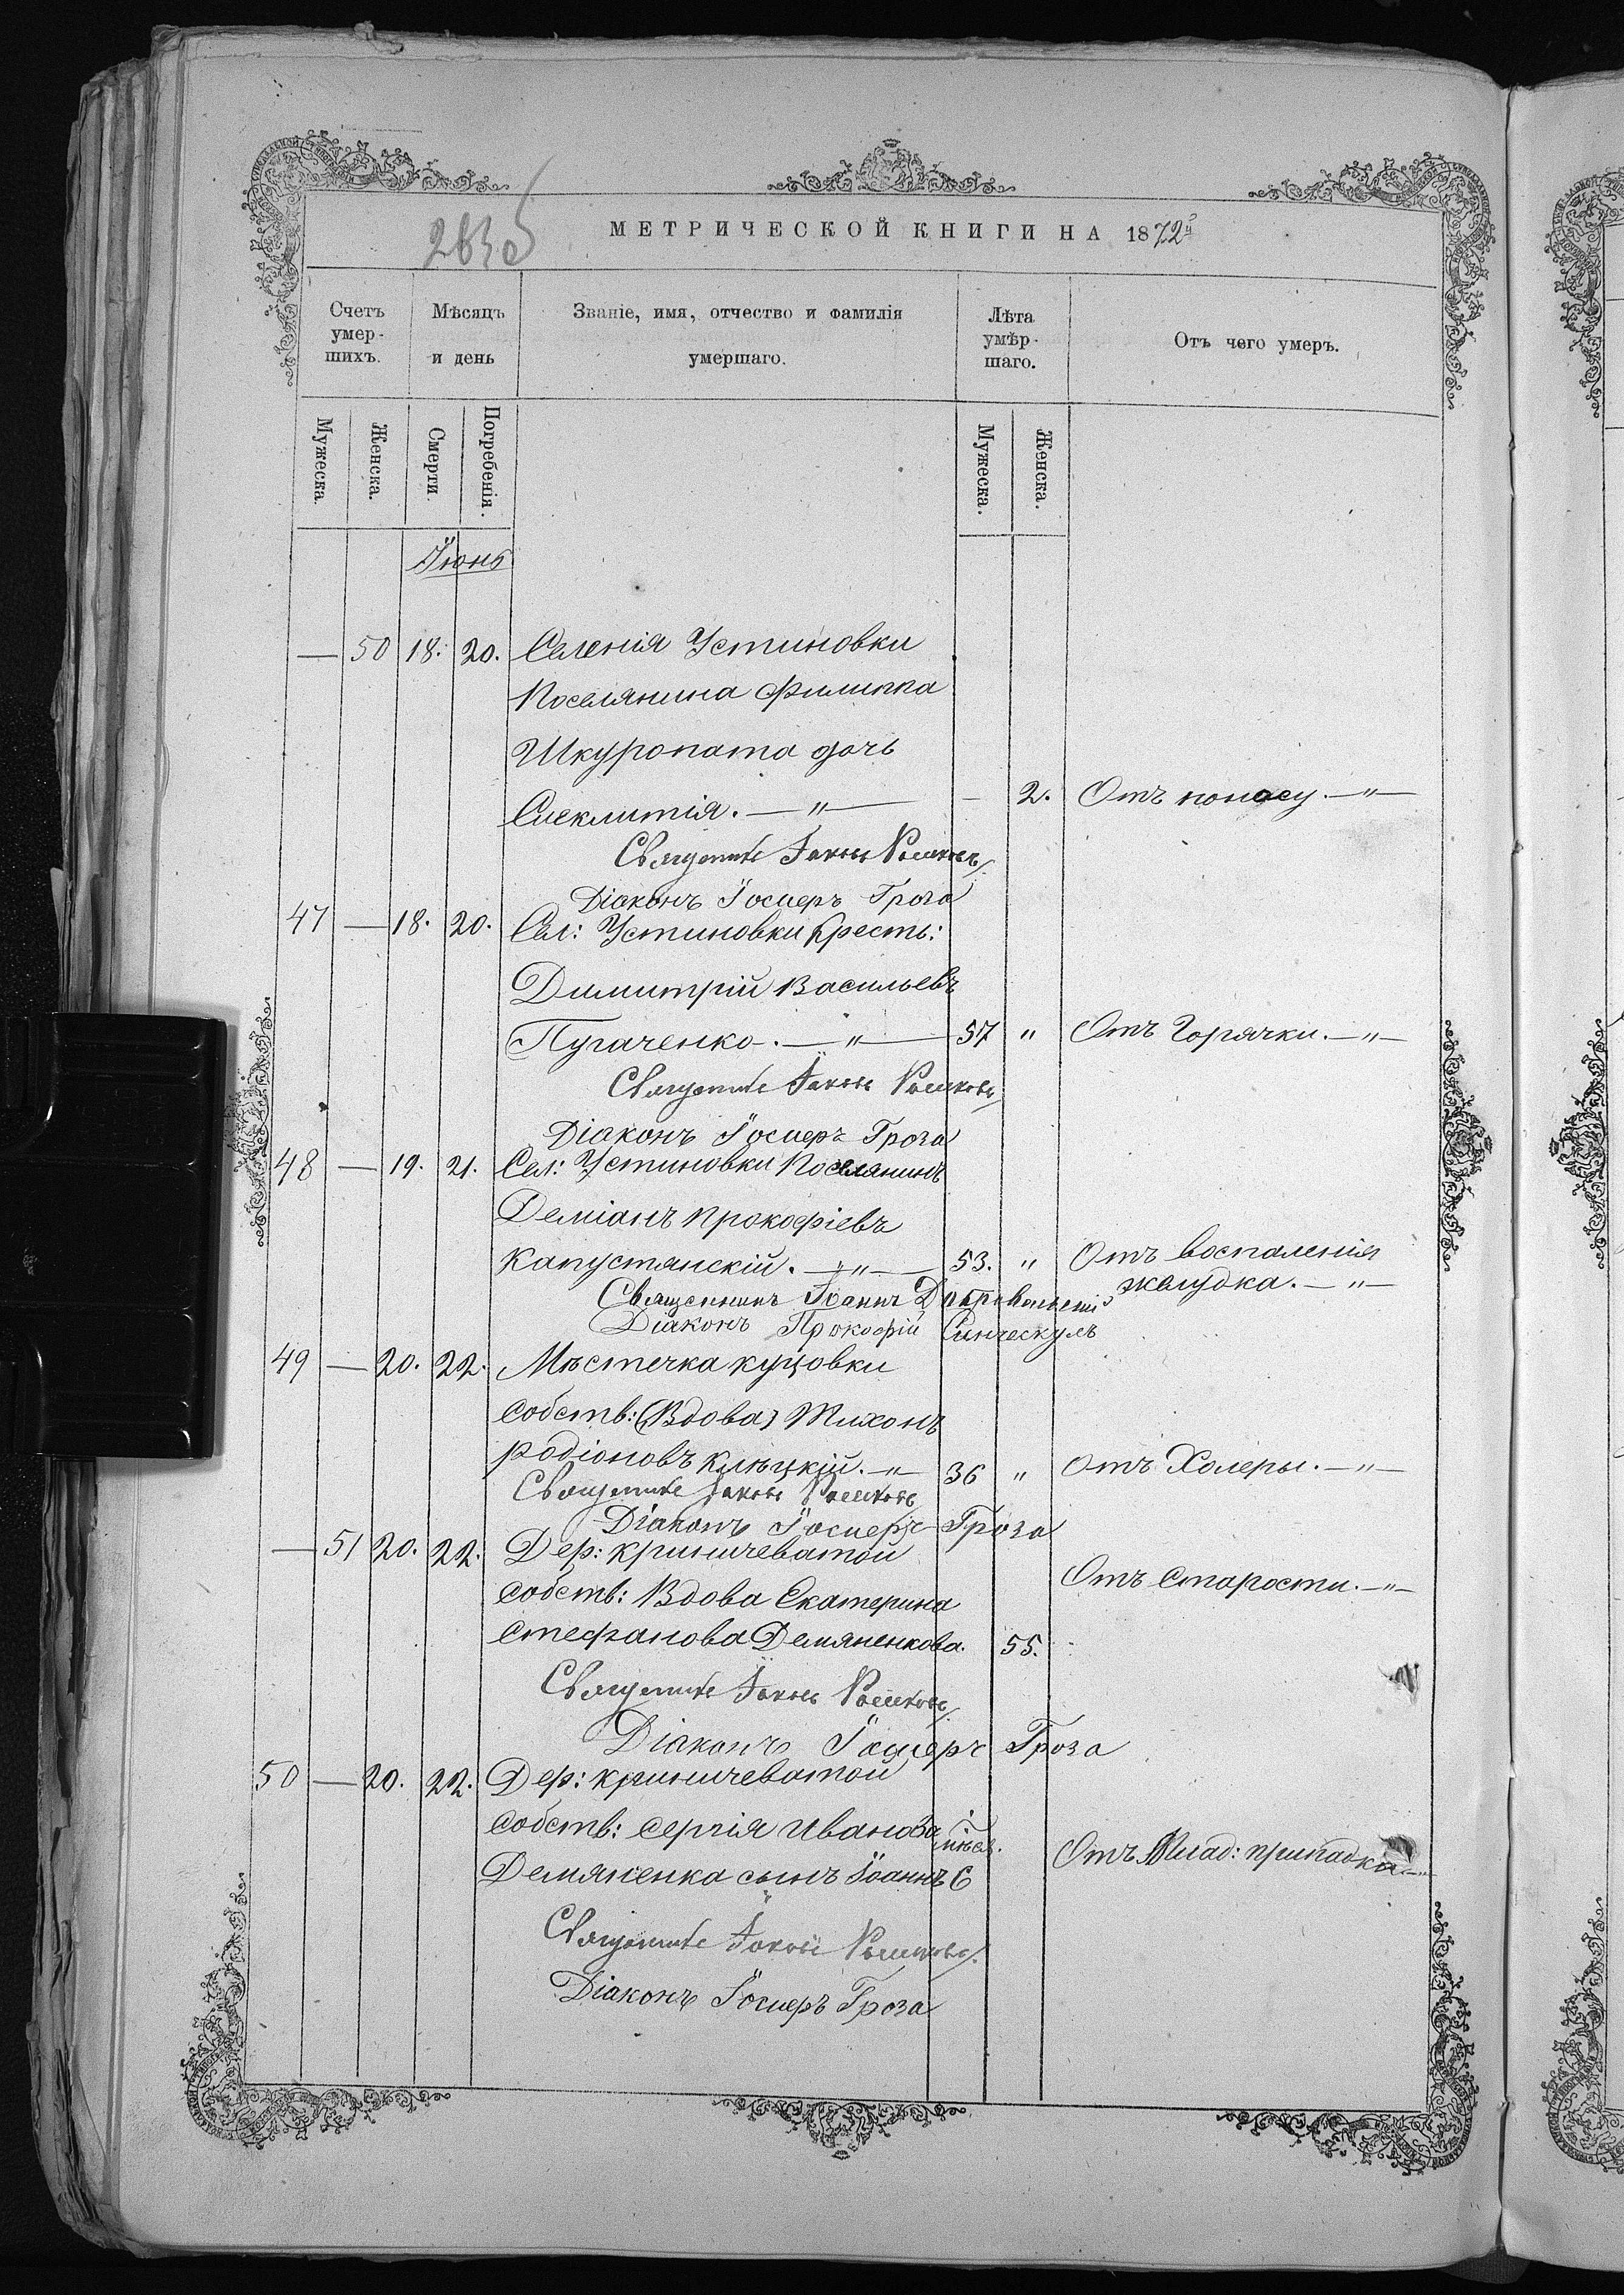 263об
МЕТРИЧЕСКОЙ КНИГИ НА 1872й
Счетъ умер- шихъ.
Мѣсяцъ и день
Званіе, имя, отчество и фамилія умершаго.
Лѣта умѣр- шаго.
Отъ чего умеръ.
Мужеска.
Женска.
Смерти.
Погребенія.
Мужеска.
Женска.
Іюнь
— 50 18. 20. Селенія Устиновки
Поселянина Филиппа
Шкуропата дочь
Синклитія. —"— — 2. Отъ поносу. —"—
Священникъ Іаковъ
Діаконъ Іосифъ Гроза
47 — 18. 20. Сел: Устиновки Кресть:
Димитрій Васильевъ
Пугаченко. —"— 57 " Отъ Горячки. —"—
Священникъ Іаковъ
Діаконъ Іосифъ Гроза
48 — 19. 21. Сел: Устиновки Поселянинъ
Деміанъ Прокофіевъ
Капустянскій. —"— 53. " Отъ воспаленія
желудка. —"—
Священникъ Іоаннъ
Діаконъ Прокофій
49 — 20. 22. Мѣстечка Куцовки
Собств: (Вдова) Тихонъ
Родіоновъ —"— 36 " Отъ Холеры. —"—
Священникъ Іаковъ
Діаконъ Іосифъ Гроза
— 51 20. 22. Дер: Криничеватой
Отъ Старости. —"—
Собств: Вдова Екатерина
Стефанова Демяненкова. 55.
Священникъ Іаковъ
Діаконъ Іосифъ Гроза
50 — 20. 22. Дер: Криничеватой
Собств: Сергія Иванова мѣся.
Демяненка сынъ Іоаннъ 6 Отъ Млад: припадка —"—
Священникъ Іаковъ
Діаконъ Іосифъ Гроза